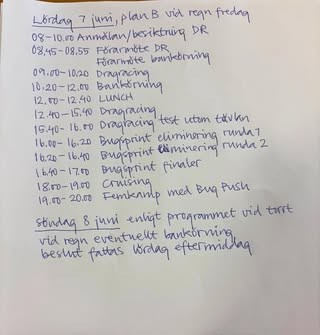 Lördag 7 juni, plan B vid regn fredag
08-10.00 Anmälan/besiktning DR
08.45-08.55 Förarmöte DR
Förarmöte bankörning
09.00-10.20 Dragracing
10.20-12.00 Bankörning
12.00-12.40 LUNCH
12.40-15.40 Dragracing
15.40-16.00 Dragracing test utom tävlan
16.00-16.20 Bugsprint eliminering runda 1
16.20-16.40 Bugsprint eliminering runda 2
16.40-17.00 Bugsprint finaler
18.00-19.00 Cruising
19.00-20.00 Femkamp med Bug Push
söndag 8 juni enligt programmet vid torrt
vid regn eventuellt bankörning
beslut fattas lördag eftermiddag